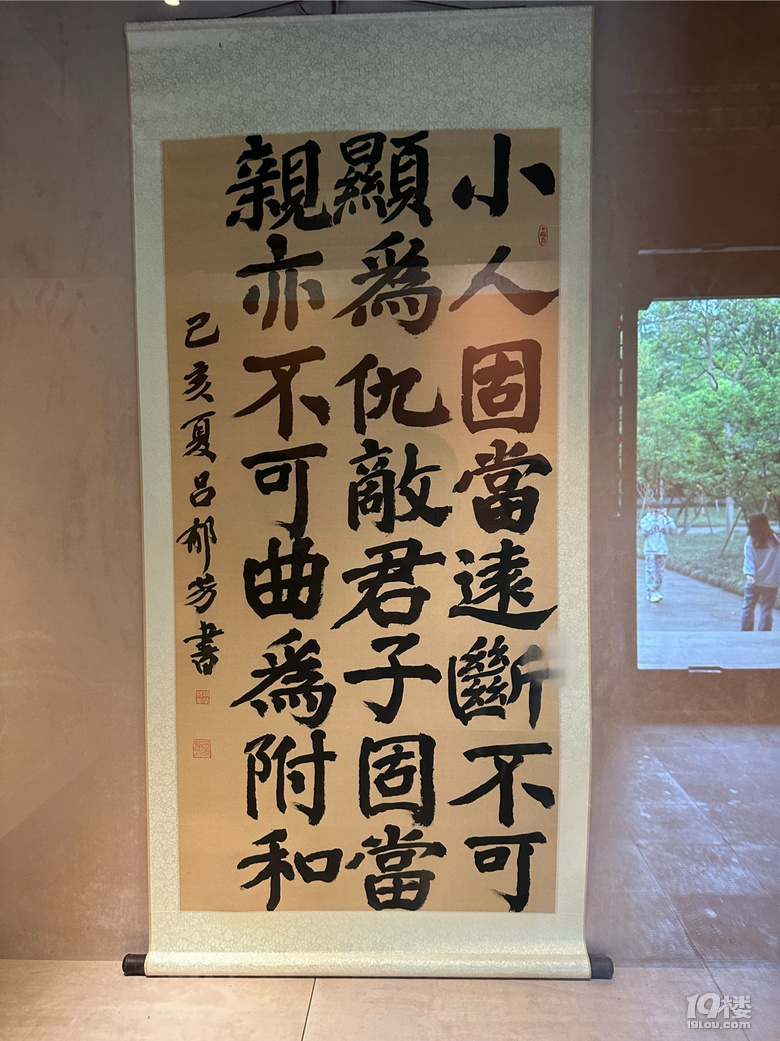 小人固當遠斷不可
顯為仇敵君子固當
親亦不可曲為附和
己亥夏吕郁芳書
19楼
19lou.com